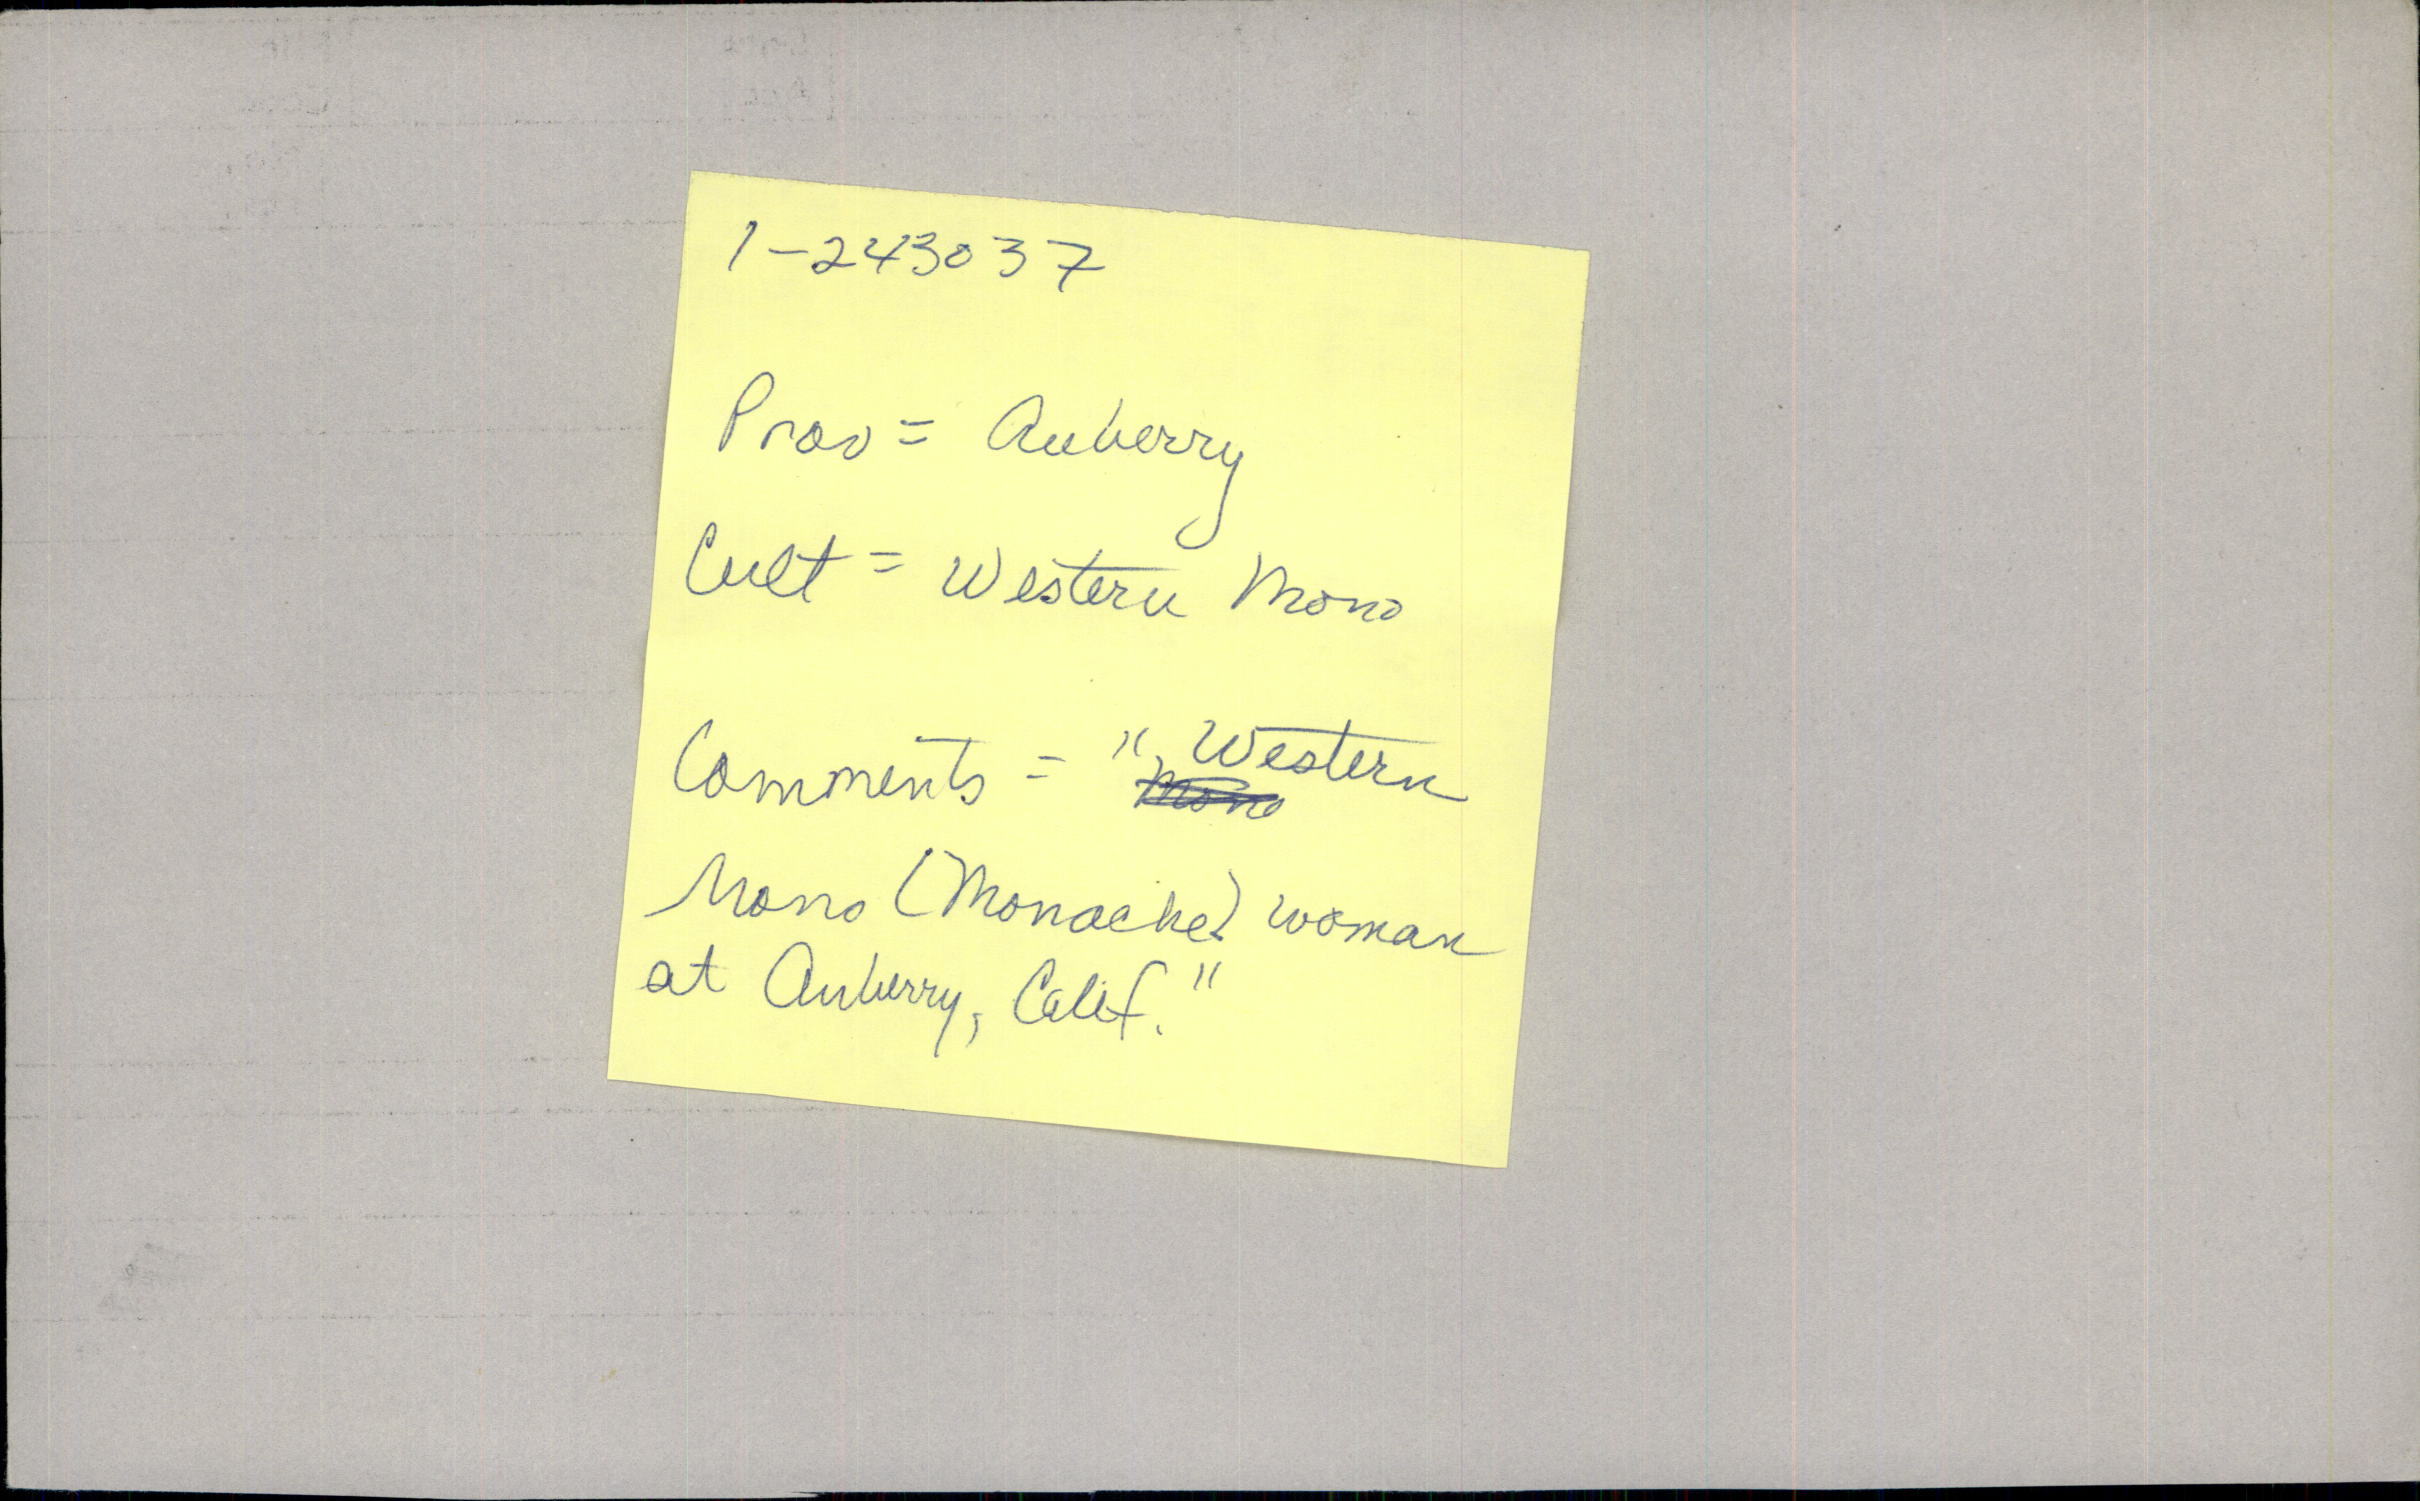 1-243037
Prov = Auberry
Cult = Western Mono
Comments = " Western
Mono
Mono (Monache) woman
at Auberry, Calif."